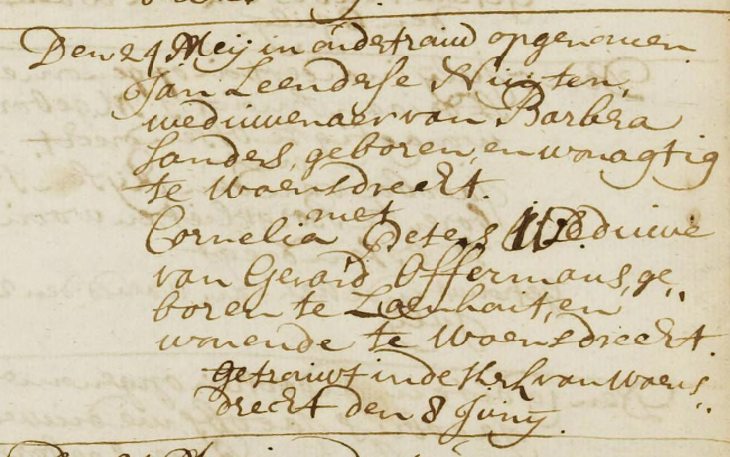 Den 24 Meij in ondertrouw opgenomen
Jan Leendertse Nuijten,
weduwenaer van Barbera
Sanders, geboren, en wonagtig
te Woensdrecht.
met
Cornelia Peters Weduwe
van Gerard Offermans, ge„
boren te Loenhout, en
wonende te Woensdrecht.
getrouwt in de Kerk van Woens„
drecht den 8 Junij.